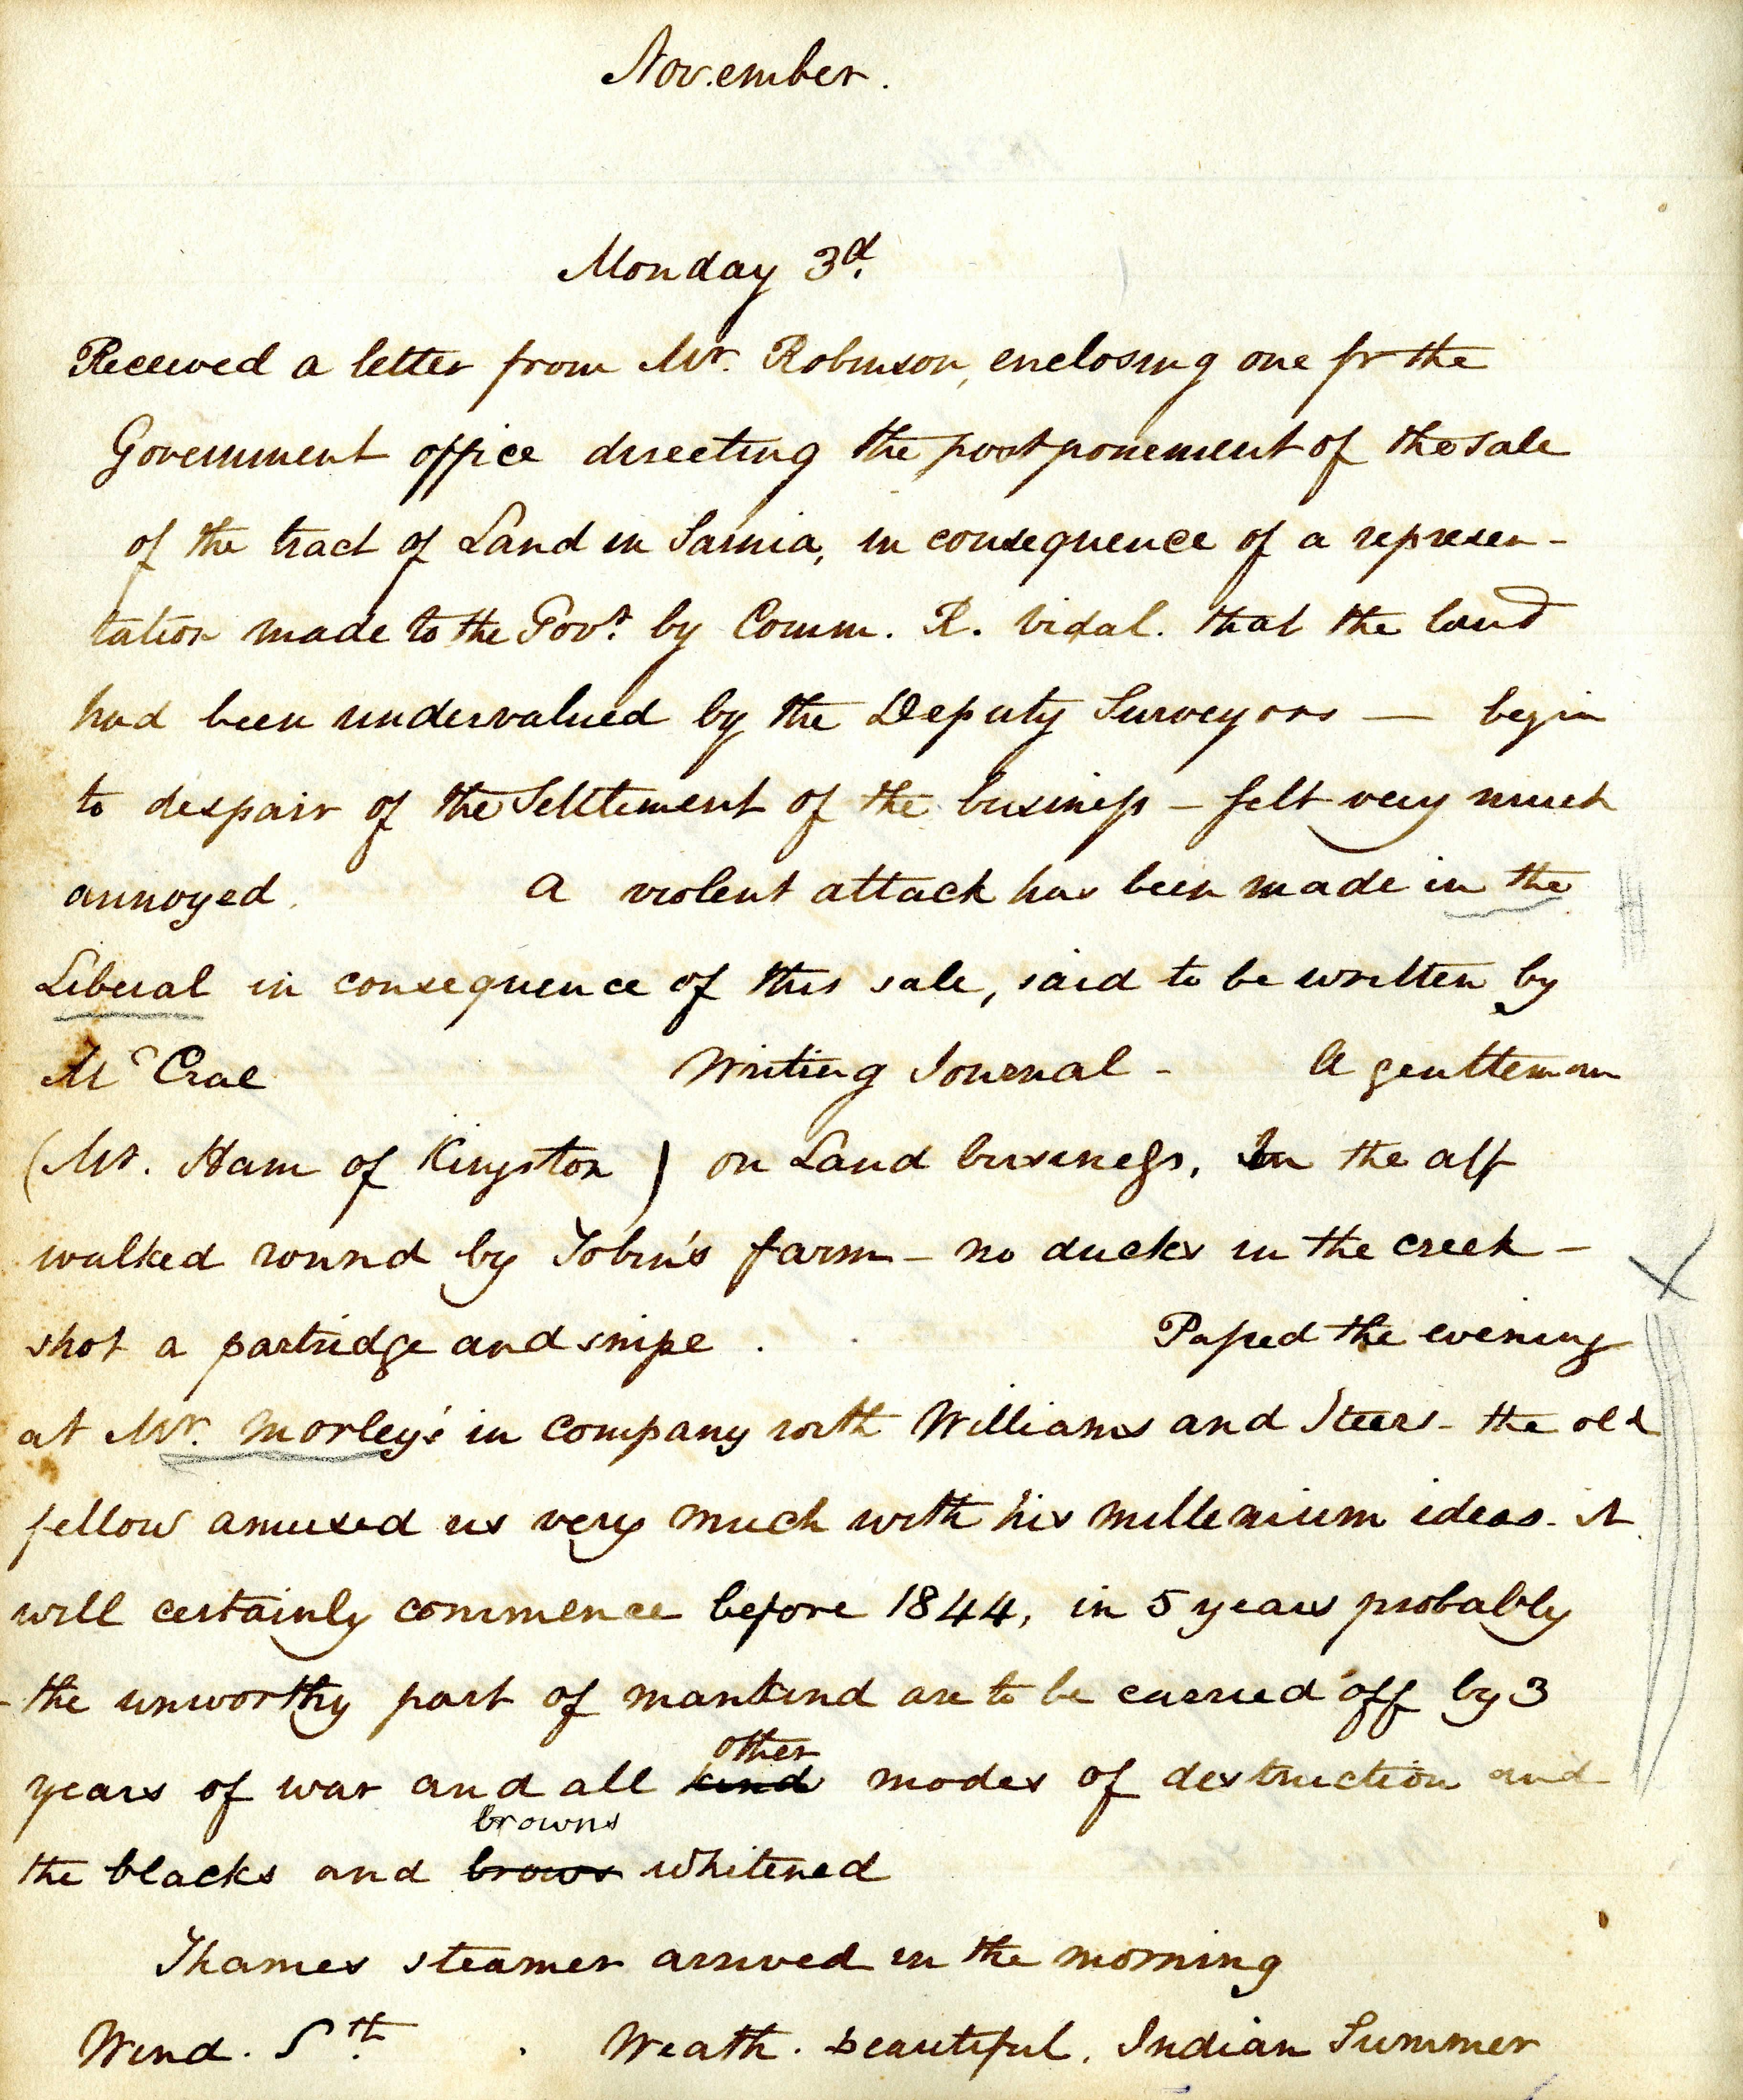 November.
Monday 3d.
Received a letter from Mr. Robinson, enclosing one fr the
Government office directing the postponement of the sale
of the tract of Land in Sarnia, in consequence of a represen-
tation made to the Govt. by Comm. R. Vidal. that the land
had been undervalued by the Deputy Surveyors — begin
to despair of the Settlement of the business - felt very much
annoyed. A violent attack has been made in the
Liberal in consequence of this sale, said to be written by
McCrae Writing Journal - A gentleman
(Mr. Ham of Kingston) on Land business. In the aft
walked round by Tobin's farm - no ducks in the creek -
shot a partridge and snipe. Passed the evening
at Mr. Morley's in company with Williams and Steers - the old
fellow amused us very much with his millenium ideas - it
will certainly commence before 1844, in 5 years probably
- the unworthy part of mankind are to be carried off by 3
other
years of war and all kind modes of destruction and
browns
the blacks and brows whitened
Thames steamer arrived in the morning
Wind. Sth. Weath. beautiful. Indian Summer